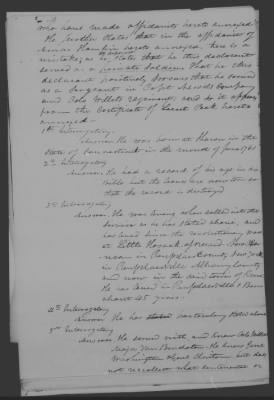 who have made affidavits hereto annexed
He further states that in the affidavit of
hereto annexed, there is a
mistake as to state that he this declarant
served as a private soldier That he this
declarant positively swears that he served
as a Sergeant in Capt Company
and Cols Willets regiment, and so it appears
from the Certificate of hereto
annexed
1st Interrogatory
Answer He was born at Sharon in the
State of Connecticut in the month of June 1761
2nd Interrogatory
Answer He had a record of his age in a
Bible but the leaves are worn so
that the record is destroyed
3rd Interrogatory
Answer He was living when called into the
service as he has stated above, and
has lived since the revolutionary war
at Little Hosack aforesaid, now
in Rensselaer County, New York
in Rensselaerville Albany County
and now in the said town of
He has lived in Rensselaerville &
about 45 years
4th Interrogatory
Answer He has particularly stated above
5th Interrogatory
Answer He served with and knew Col Willet
Major Van Benscoten He knew Genl
Washington & Genl Clinton but does
not recollect what continental or